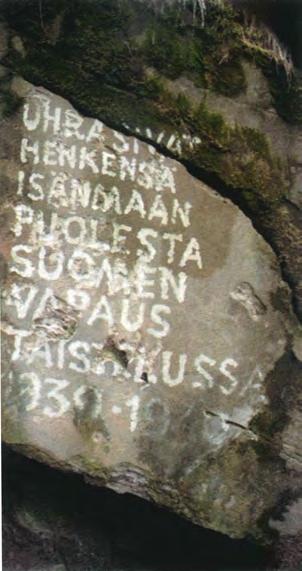 UHRASIVAT
HENKENSÄ
ISÄNMAAN
PUOLESTA
SUOMEN
VAPAUS
TAISTELUSSA
1939-